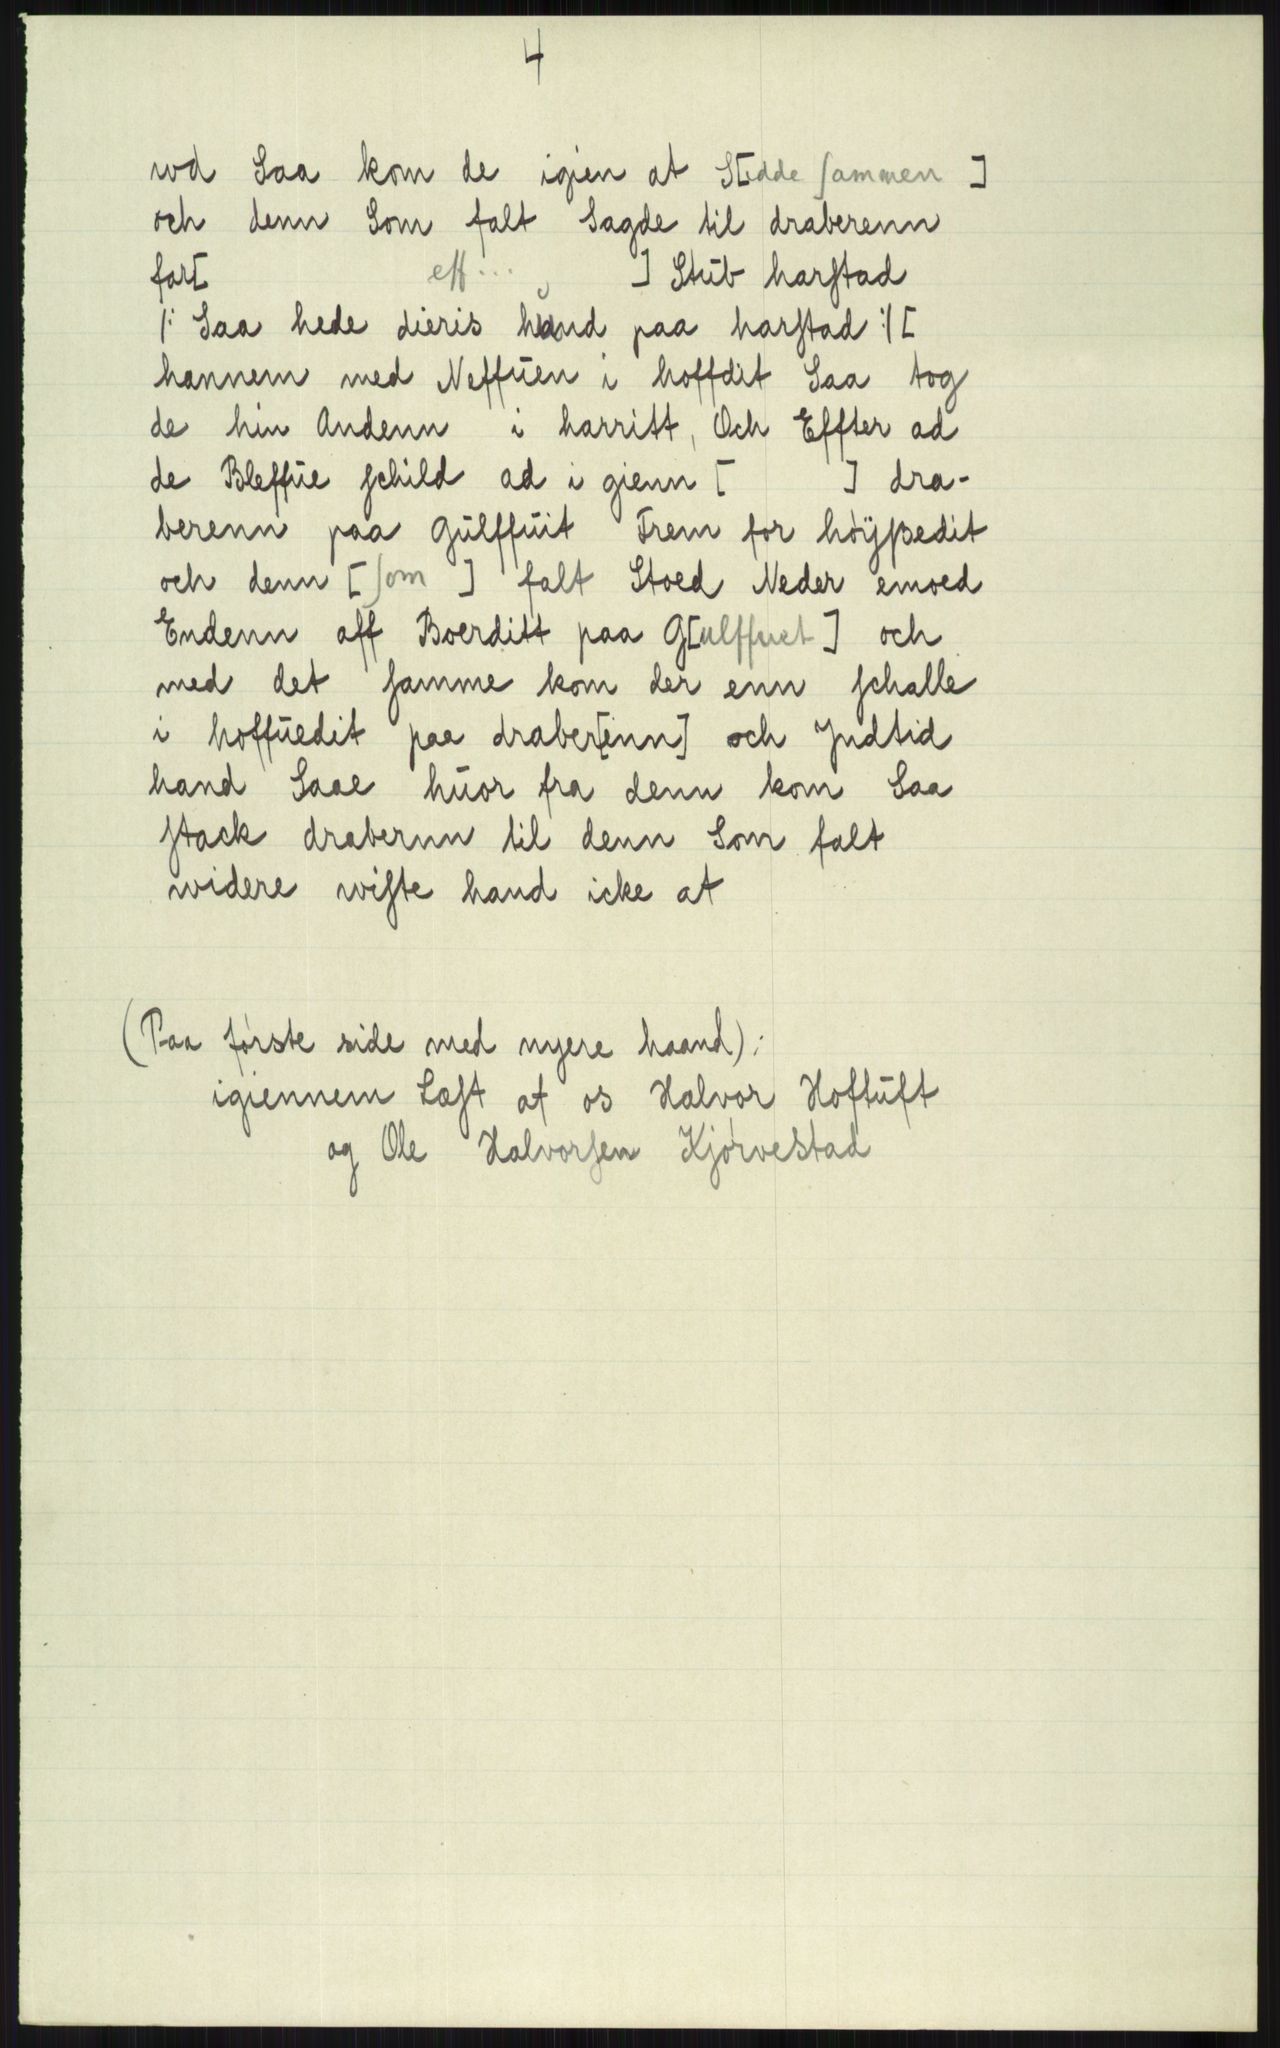 4
wd Saa kom de igien at S[idde sammen ]
och denn Som falt Sagde til draberenn
for[ eff... ] Stub harstad
/: Saa hede dieris hund paa harstad :/ [
hannem med Neffuen i hoffdit Saa tog
de hin Andenn i harritt, Och Effter ad
de Bleffue schild ad i gienn [ ] dra-
berenn paa Gulffuit Frem for höÿßedit
och denn [som ] falt Stoed Neder emoed
Endenn aff Boerditt paa G[ulffuet] och
med det samme kom der enn schalle
i hoffuedit paa draber[inn] och Jndtid
hand Saae huor fra denn kom Saa
stack drabernn til denn Som falt
widere wiste hand icke at
(Paa første side med nyere haand):
igiennem Læst af os Halvor Hoftuft
og Ole Halvorsen Kjørvestad